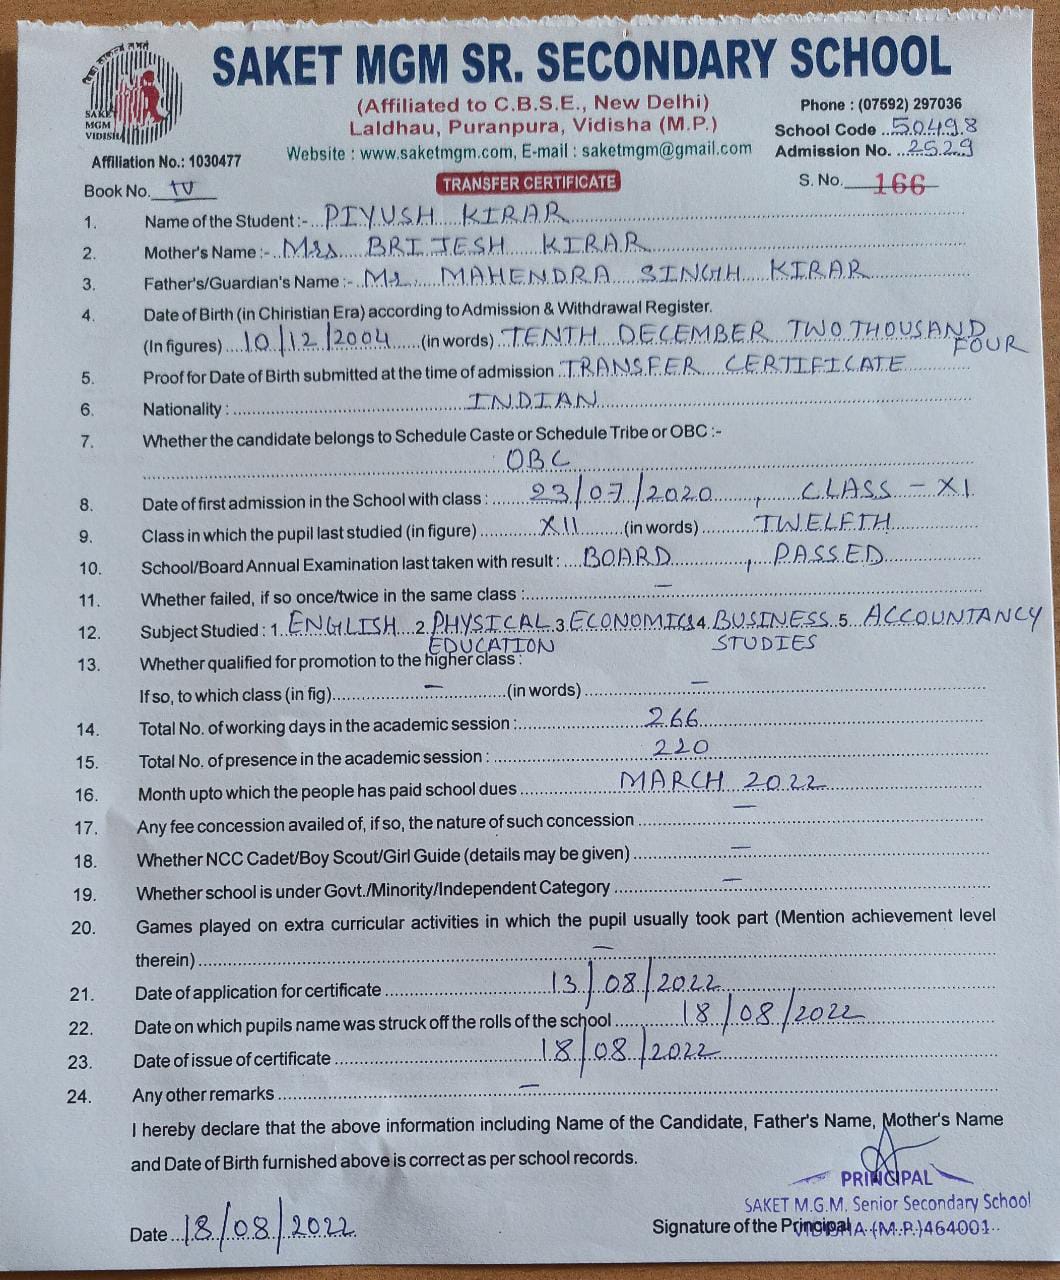 SAKET MGM SR. SECONDARY SCHOOL
SAKET
MGM
VIDISHA
(Affiliated to C.B.S.E., New Delhi)
Laldhau, Puranpura, Vidisha (M.P.)
Website : www.saketmgm.com, E-mail : saketmgm@gmail.com
Phone : (07592) 297036
School Code ..50498
Admission No. ..2529
Affiliation No.: 1030477
Book No. IV
TRANSFER CERTIFICATE
S. No. 166
1. Name of the Student :- PIYUSH KIRAR
2. Mother's Name :- Mrs BRIJESH KIRAR
3. Father's/Guardian's Name :- Mr. MAHENDRA SINGH KIRAR
4. Date of Birth (in Chiristian Era) according to Admission & Withdrawal Register.
(In figures) 10/12/2004 (in words) TENTH DECEMBER TWO THOUSAND
FOUR
5. Proof for Date of Birth submitted at the time of admission TRANSFER CERTIFICATE
6. Nationality : INDIAN
7. Whether the candidate belongs to Schedule Caste or Schedule Tribe or OBC :-
OBC
8. Date of first admission in the School with class : 23/07/2020, CLASS - XI
9. Class in which the pupil last studied (in figure) XII (in words) TWELFTH
10. School/Board Annual Examination last taken with result : BOARD, PASSED
11. Whether failed, if so once/twice in the same class : —
12. Subject Studied : 1. ENGLISH 2 PHYSICAL 3 ECONOMICS 4 BUSINESS 5 ACCOUNTANCY
EDUCATION STUDIES
13. Whether qualified for promotion to the higher class :
If so, to which class (in fig) — (in words) —
14. Total No. of working days in the academic session : 266
15. Total No. of presence in the academic session : 220
16. Month upto which the people has paid school dues MARCH 2022
17. Any fee concession availed of, if so, the nature of such concession —
18. Whether NCC Cadet/Boy Scout/Girl Guide (details may be given) —
19. Whether school is under Govt./Minority/Independent Category —
20. Games played on extra curricular activities in which the pupil usually took part (Mention achievement level
therein) —
21. Date of application for certificate 13/08/2022
22. Date on which pupils name was struck off the rolls of the school 18/08/2022
23. Date of issue of certificate 18/08/2022
24. Any other remarks —
I hereby declare that the above information including Name of the Candidate, Father's Name, Mother's Name
and Date of Birth furnished above is correct as per school records.
PRINCIPAL
SAKET M.G.M. Senior Secondary School
VIDISHA (M.P.) 464001
Date 18/08/2022
Signature of the Principal